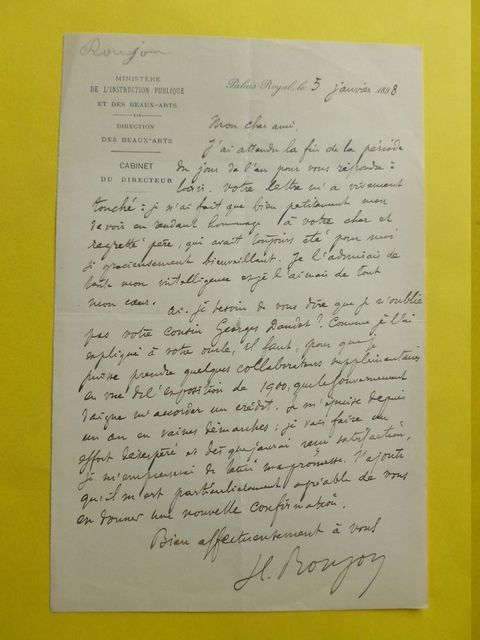 Roujon
MINISTÈRE
DE L'INSTRUCTION PUBLIQUE
ET DES BEAUX-ARTS
DIRECTION
DES BEAUX-ARTS
CABINET
DU DIRECTEUR
Palais-Royal, le 5 janvier 1898
Mon cher ami,
J'ai attendu la fin de la période
du jour de l'an pour vous répondre à
loisir. Votre lettre m'a vivement
touché : je n'ai fait que bien petitement mon
devoir en rendant hommage à votre cher et
regretté père, qui avait toujours été pour moi
si gracieusement bienveillant. Je l'admirais de
toute mon intelligence et je l'aimais de tout
mon cœur.
Ai-je besoin de vous dire que je n'oublie
pas votre cousin Georges Daudet ? Comme je l'ai
expliqué à votre oncle, il faut, pour que je
puisse prendre quelques collaborateurs supplémentaires
en vue de l'exposition de 1900, que le Gouvernement
daigne m'accorder un crédit. Je m'épuise depuis
un an en vaines démarches ; je vais faire un
effort désespéré et dès que j'aurai reçu satisfaction,
je m'empresserai de tenir ma promesse. J'ajoute
qu'il m'est particulièrement agréable de vous
en donner une nouvelle confirmation.
Bien affectueusement à vous
H. Roujon